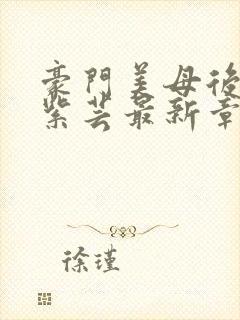 豪門美母後
紫芸最新章
徐瑾